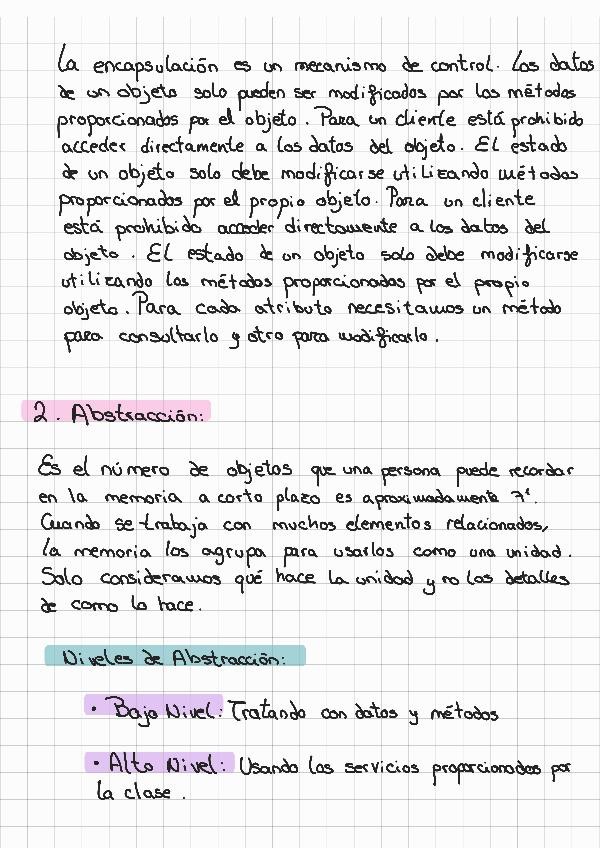 La encapsulación es un mecanismo de control. Los datos
de un objeto solo pueden ser modificados por los métodos
proporcionados por el objeto. Para un cliente está prohibido
acceder directamente a los datos del objeto. El estado
de un objeto solo debe modificarse utilizando métodos
proporcionados por el propio objeto. Para un cliente
está prohibido acceder directamente a los datos del
objeto. El estado de un objeto solo debe modificarse
utilizando los métodos proporcionados por el propio
objeto. Para cada atributo necesitamos un método
para consultarlo y otro para modificarlo.
2. Abstracción:
Es el número de objetos que una persona puede recordar
en la memoria a corto plazo es aproximadamente 7.
Cuando se trabaja con muchos elementos relacionados,
la memoria los agrupa para usarlos como una unidad.
Solo consideramos qué hace la unidad y no los detalles
de como lo hace.
Niveles de Abstracción:
• Bajo Nivel: Tratando con datos y métodos
• Alto Nivel: Usando los servicios proporcionados por
la clase.